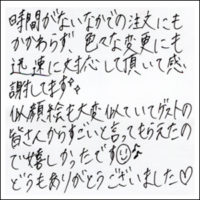 時間がないなかでの注文にも
かかわらず、色々な変更にも
迅速に対応して頂いて感
謝してます
似顔絵も大変似ていてゲストの
皆さんからすごいと言ってもらえたの
で嬉しかったです な
どうもありがとうございました♡